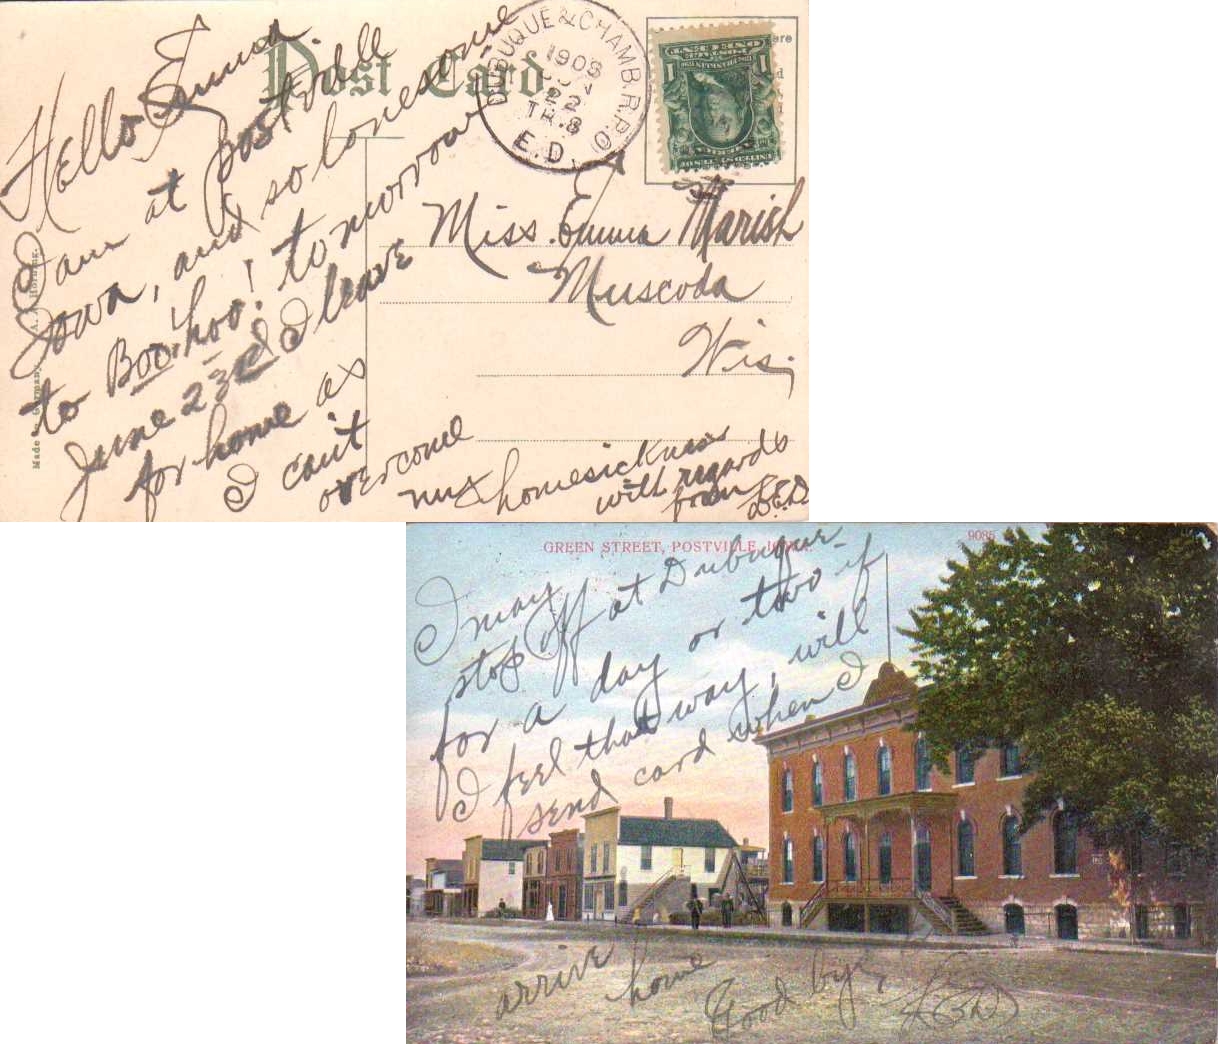 Post Card
DUBUQUE & CHAMB. R.P.O.
1908
JUN
22
TR.8
E.D.
Hello Emma
I am at Postville
Iowa, and so lonesome
to Boo-hoo! tomorrow
June 23rd I leave
for home as
I can't
overcome
my homesickness
with regards
from
Miss. Emma Marish
Muscoda
Wis.
Made in Germany.
GREEN STREET, POSTVILLE, IOWA.
9085
I may
stop off at Dubuque
for a day or two if
I feel that way, will
send card when I
arrive
home
Good bye,